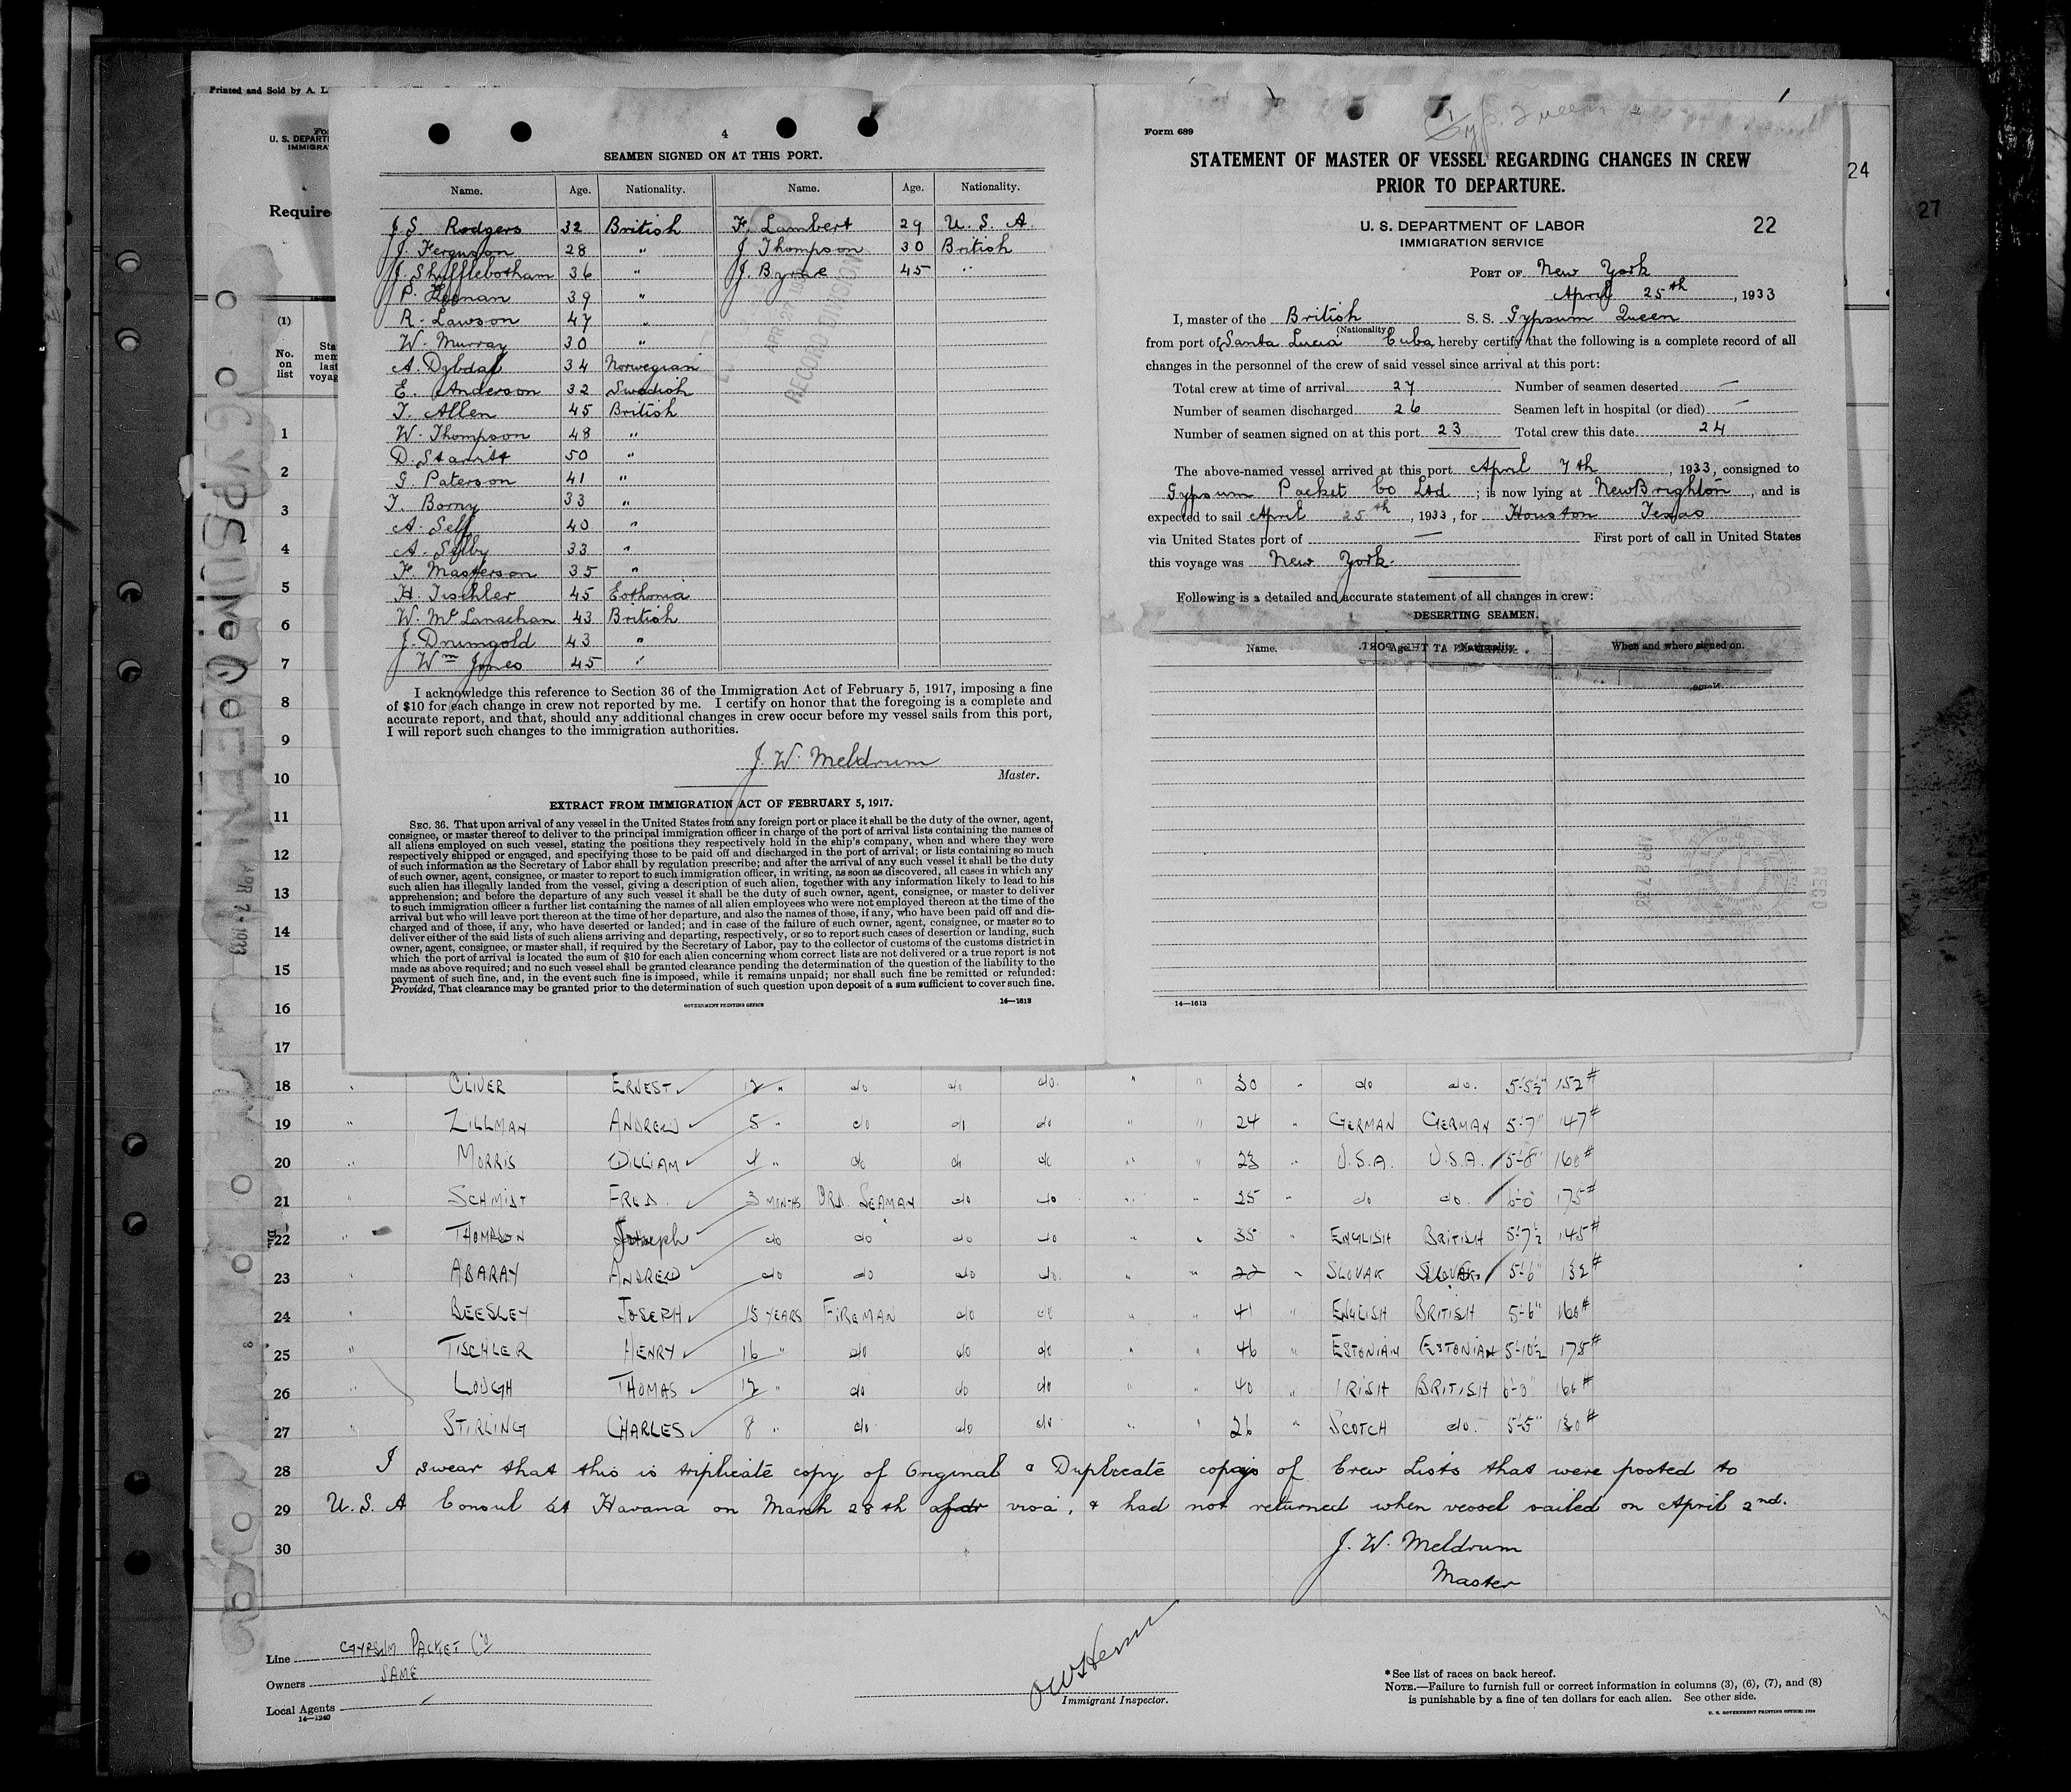 Printed and Sold by A. L
U. S. DEPART
IMMIGRA
Require
(1)
No. on list
24
27
4
SEAMEN SIGNED ON AT THIS PORT.
Name. Age. Nationality. Name. Age. Nationality.
J. S. Rodgers 32 British F. Lambert 29 U. S. A.
J. Ferguson 28 " J. Thompson 30 British
J. Shufflebotham 36 " J. Byrne 45 "
P. Heenan 39 "
R. Lawson 47 "
W. Murray 30 "
A. Dybdal 34 Norwegian
E. Anderson 32 Swedish
T. Allen 45 British
W. Thompson 48 "
D. Starritt 50 "
G. Paterson 41 "
T. Borny 33 "
A. Self 40 "
A. Selby 33 "
F. Masterson 35 "
H. Tischler 45 Esthonia
W. Mc Lanachan 43 British
J. Drumgold 43 "
Wm Jones 45 "
APR 27 1933
RECORD DIVISION
I acknowledge this reference to Section 36 of the Immigration Act of February 5, 1917, imposing a fine
of $10 for each change in crew not reported by me. I certify on honor that the foregoing is a complete and
accurate report, and that, should any additional changes in crew occur before my vessel sails from this port,
I will report such changes to the immigration authorities.
J. W. Meldrum
Master.
EXTRACT FROM IMMIGRATION ACT OF FEBRUARY 5, 1917.
SEC. 36. That upon arrival of any vessel in the United States from any foreign port or place it shall be the duty of the owner, agent,
consignee, or master thereof to deliver to the principal immigration officer in charge of the port of arrival lists containing the names of
all aliens employed on such vessel, stating the positions they respectively hold in the ship's company, when and where they were
respectively shipped or engaged, and specifying those to be paid off and discharged in the port of arrival; or lists containing so much
of such information as the Secretary of Labor shall by regulation prescribe; and after the arrival of any such vessel it shall be the duty
of such owner, agent, consignee, or master to report to such immigration officer, in writing, as soon as discovered, all cases in which any
such alien has illegally landed from the vessel, giving a description of such alien, together with any information likely to lead to his
apprehension; and before the departure of any such vessel it shall be the duty of such owner, agent, consignee, or master to deliver
to such immigration officer a further list containing the names of all alien employees who were not employed thereon at the time of the
arrival but who will leave port thereon at the time of her departure, and also the names of those, if any, who have been paid off and dis-
charged and of those, if any, who have deserted or landed; and in case of the failure of such owner, agent, consignee, or master so to
deliver either of the said lists of such aliens arriving and departing, respectively, or so to report such cases of desertion or landing, such
owner, agent, consignee, or master shall, if required by the Secretary of Labor, pay to the collector of customs of the customs district in
which the port of arrival is located the sum of $10 for each alien concerning whom correct lists are not delivered or a true report is not
made as above required; and no such vessel shall be granted clearance pending the determination of the question of the liability to the
payment of such fine, and, in the event such fine is imposed, while it remains unpaid; nor shall such fine be remitted or refunded:
Provided, That clearance may be granted prior to the determination of such question upon deposit of a sum sufficient to cover such fine.
GOVERNMENT PRINTING OFFICE 14—1613
Gyp. Queen
Form 689
STATEMENT OF MASTER OF VESSEL REGARDING CHANGES IN CREW
PRIOR TO DEPARTURE.
U. S. DEPARTMENT OF LABOR
IMMIGRATION SERVICE
22
PORT OF New York
April 25th, 1933
I, master of the British S. S. Gypsum Queen
(Nationality)
from port of Santa Lucia Cuba, hereby certify that the following is a complete record of all
changes in the personnel of the crew of said vessel since arrival at this port:
Total crew at time of arrival 27 Number of seamen deserted —
Number of seamen discharged 26 Seamen left in hospital (or died) —
Number of seamen signed on at this port 23 Total crew this date 24
The above-named vessel arrived at this port April 7th, 1933, consigned to
Gypsum Packet Co Ltd; is now lying at New Brighton, and is
expected to sail April 25th, 1933, for Houston Texas
via United States port of — First port of call in United States
this voyage was New York.
Following is a detailed and accurate statement of all changes in crew:
DESERTING SEAMEN.
Name. Age. Nationality. When and where signed on.
14—1613
GYPSUM QUEEN
APR 7 - 1933
1
2
3
4
5
6
7
8
9
10
11
12
13
14
15
16
17
18 " OLIVER ERNEST 12 " do do do " " 30 " do do. 5-5½" 152#
19 " ZILLMAN ANDREW 5 " do do do " " 24 " GERMAN GERMAN 5-7" 147#
20 " MORRIS WILLIAM 4 " do do do " " 23 " U.S.A. U.S.A. 5-8" 160#
21 " SCHMIDT FRED. 3 MONTHS ORD. SEAMAN do do " " 25 " do do. 6-0" 175#
22 " THOMPSON Joseph do do do do " " 35 " ENGLISH BRITISH 5-7½ 145#
23 " ABARAY ANDREW do do do do. " " 22 " SLOVAK SLOVAK 5-6" 132#
24 " BEESLEY JOSEPH 15 YEARS FIREMAN do do " " 41 " ENGLISH BRITISH 5-6" 160#
25 " TISCHLER HENRY 16 " do do do " " 46 " ESTONIAN ESTONIAN 5-10½ 178#
26 " LOUGH THOMAS 12 " do do do " " 40 " IRISH BRITISH 6-0" 160#
27 " STIRLING CHARLES 8 " do do do " " 26 " SCOTCH do. 5-5" 130#
28 I swear that this is triplicate copy of Original & Duplicate copys of Crew Lists that were posted to
29 U. S. A Consul at Havana on March 28th visa, & had not returned when vessel sailed on April 2nd.
30 J. W. Meldrum
Master
Line GYPSUM PACKET Co
Owners SAME
Local Agents
14—1240
Immigrant Inspector.
*See list of races on back hereof.
NOTE.—Failure to furnish full or correct information in columns (3), (6), (7), and (8)
is punishable by a fine of ten dollars for each alien. See other side.
U. S. GOVERNMENT PRINTING OFFICE: 1930